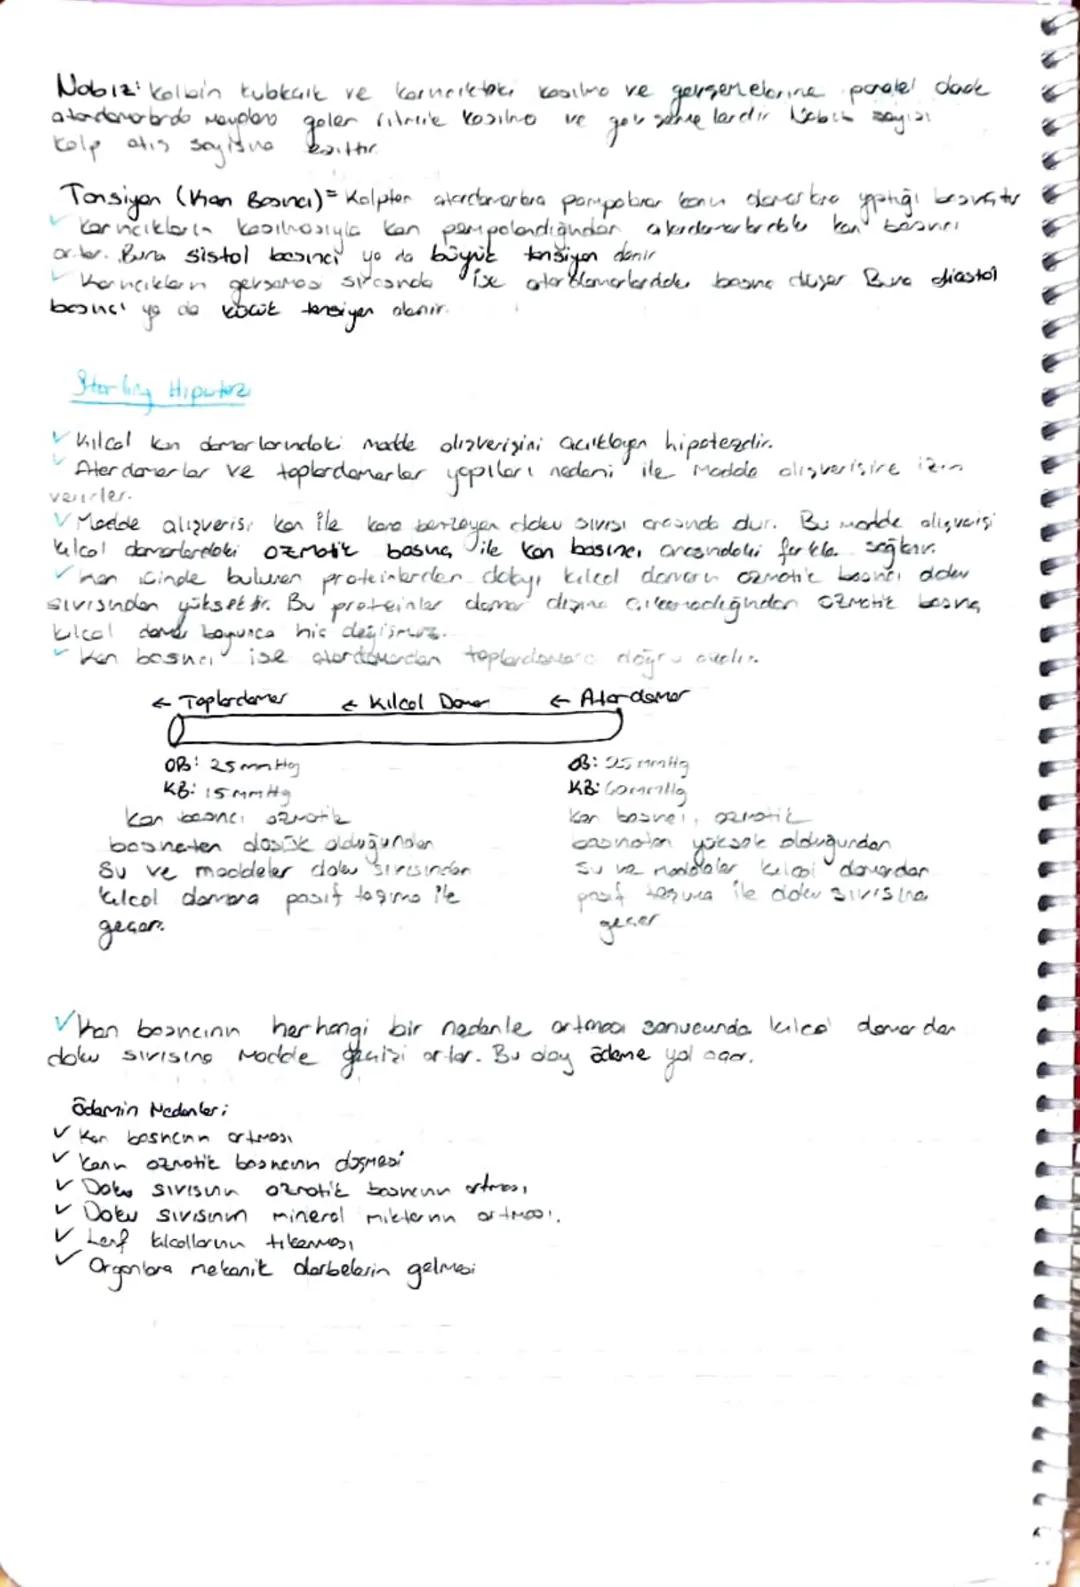 Nabız: Kalbin kulakçık ve karıncıktaki kasılma ve gevşemelerine paralel olarak
atardamarlarda meydana gelen ritmik kasılma ve gevşemelerdir Nabız sayısı
kalp atış sayısına eşittir
Tansiyon (Kan Basıncı)= Kalpten atardamarlara pompalanan kanın damarlara yaptığı basınçtır
✓ Karıncıkların kasılmasıyla kan pompalandığından atardamarlardaki kan basıncı
artar. Buna sistol basıncı ya da büyük tansiyon denir
✓ Karıncıkların gevşemesi sırasında ise atardamarlardaki basınç düşer Buna diastol
basıncı ya da küçük tansiyon denir.
Starling Hipotezi
✓ Kılcal kan damarlarındaki madde alışverişini açıklayan hipotezdir.
✓ Aterdamarlar ve toplardamarlar yapıları nedeni ile madde alışverişine izin
vermezler.
✓ Madde alışverişi kan ile kana benzeyen doku sıvısı arasında dur. Bu madde alışverişi
kılcal damarlardaki ozmotik basınç ile kan basıncı arasındaki farkla sağlanır.
✓ Kan içinde bulunan proteinlerden dolayı kılcal damarın ozmotik basıncı doku
sıvısından yüksektir. Bu proteinler damar dışına çıkamadığından ozmotik basınç
kılcal damar boyunca hiç değişmez.
✓ Kan basıncı ise atardamardan toplardamara doğru azalır.
← Toplardamar ← Kılcal Damar ← Atardamar
OB: 25 mmHg OB: 25 mmHg
KB: 15 mmHg KB: 60 mmHg
Kan basıncı ozmotik Kan basıncı, ozmotik
basınçten düşük olduğundan basınçtan yüksek olduğundan
Su ve maddeler doku sıvısından Su ve maddeler kılcal damardan
kılcal damara pasif taşıma ile pasif taşıma ile doku sıvısına
geçer. geçer
✓ Kan basıncının herhangi bir nedenle artması sonucunda kılcal damardan
doku sıvısına madde geçişi artar. Bu olay ödeme yol açar.
Ödemin Nedenleri;
✓ Kan basıncının artması
✓ Kanın ozmotik basıncının düşmesi
✓ Doku sıvısının ozmotik basıncının artması
✓ Doku sıvısının mineral miktarının artması.
✓ Lenf kılcallarının tıkanması
✓ Organlara mekanik darbelerin gelmesi